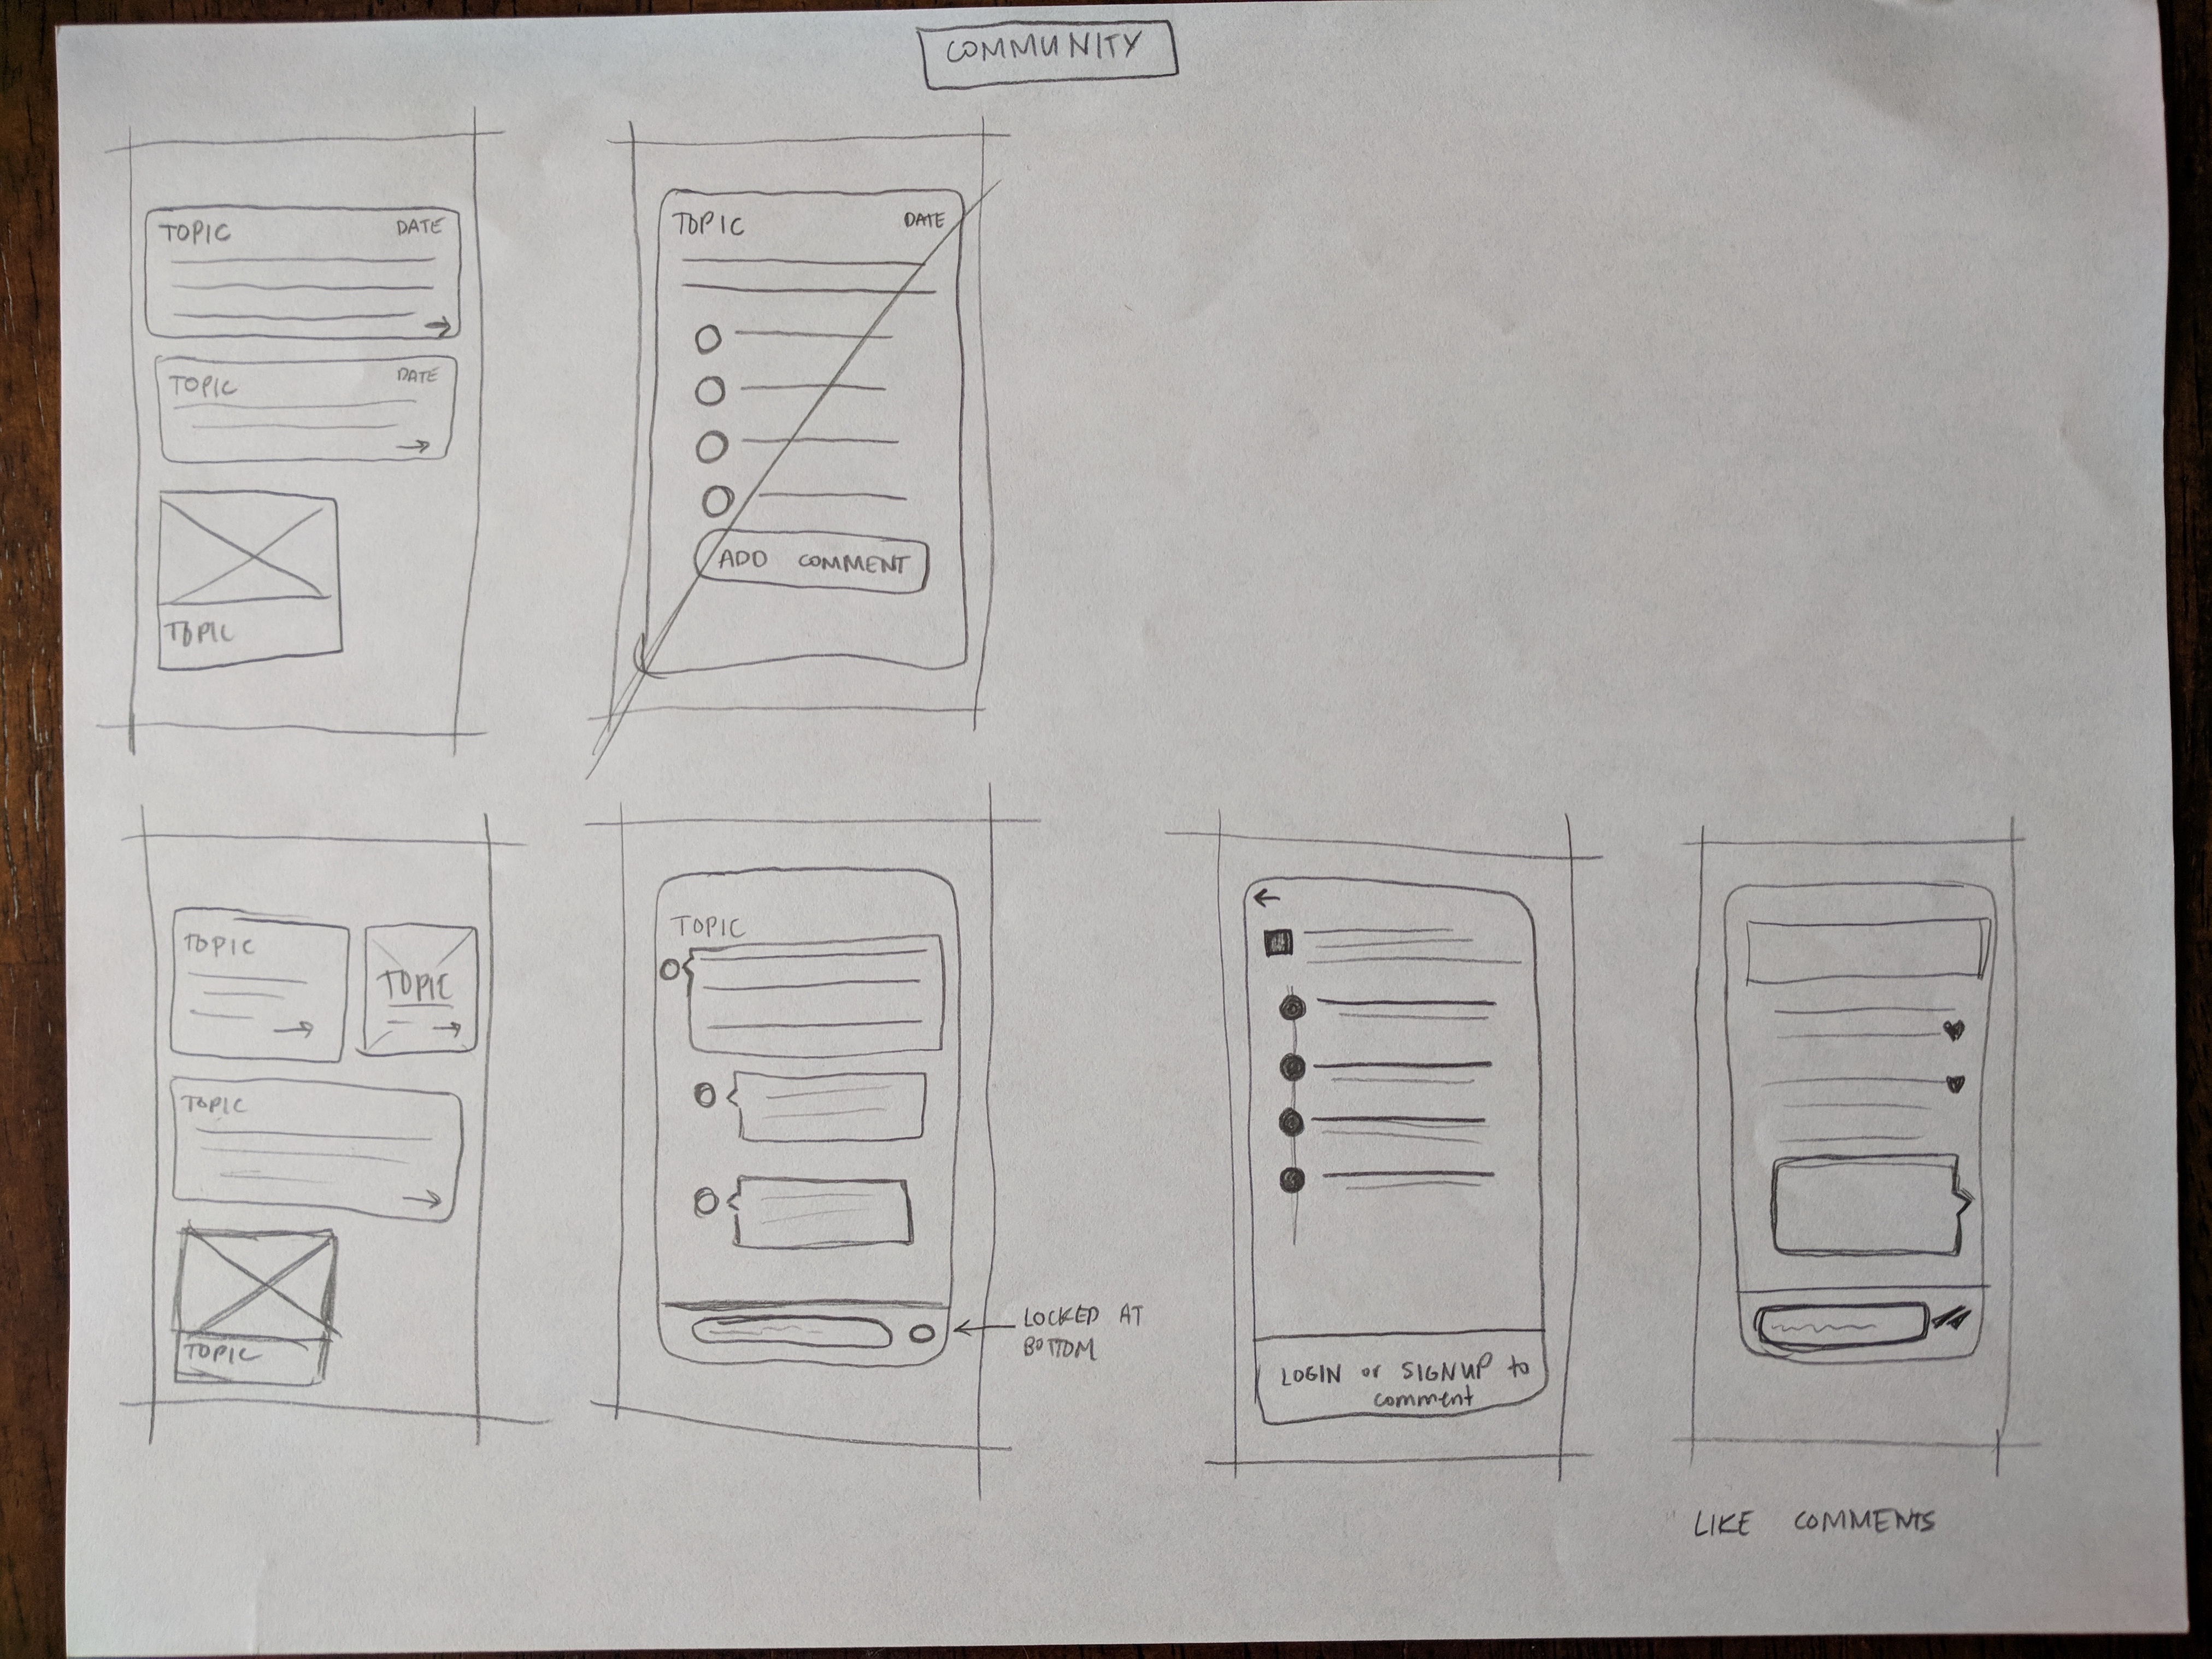 COMMUNITY
TOPIC DATE
TOPIC DATE
TOPIC
TOPIC DATE
ADD COMMENT
TOPIC
TOPIC
TOPIC
TOPIC
TOPIC
LOCKED AT
BOTTOM
LOGIN or SIGNUP to
comment
LIKE COMMENTS